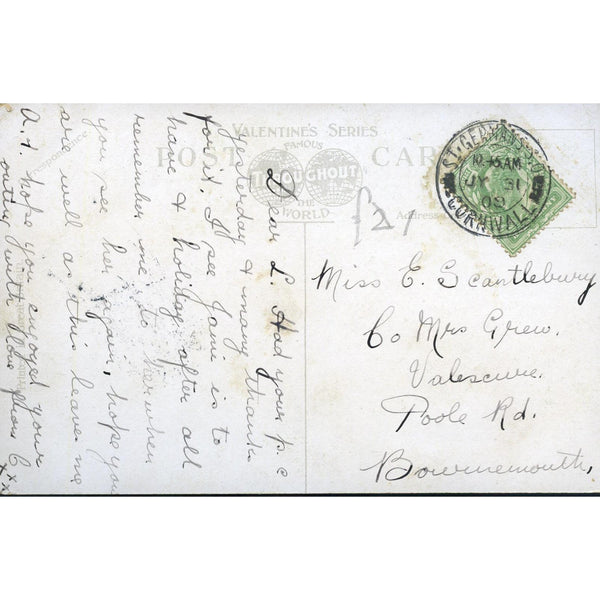 VALENTINE'S SERIES
FAMOUS
POST CARD
THROUGHOUT
THE
WORLD
Correspondence.
Address
ST. GERMANS
10.45AM
31
08
CORNWALL
£2/
Miss E. Scantlebury
Co Mrs Grew.
Valescure.
Poole Rd.
Bournemouth,
Dear L. Had your p.c
yesterday & many thanks
for it. I see Jam is to
have a holiday after all
remember me to her when
you see her again, hope you
are well as this leaves me
A.1. hope you enjoyed your
outing with love from C
x x x